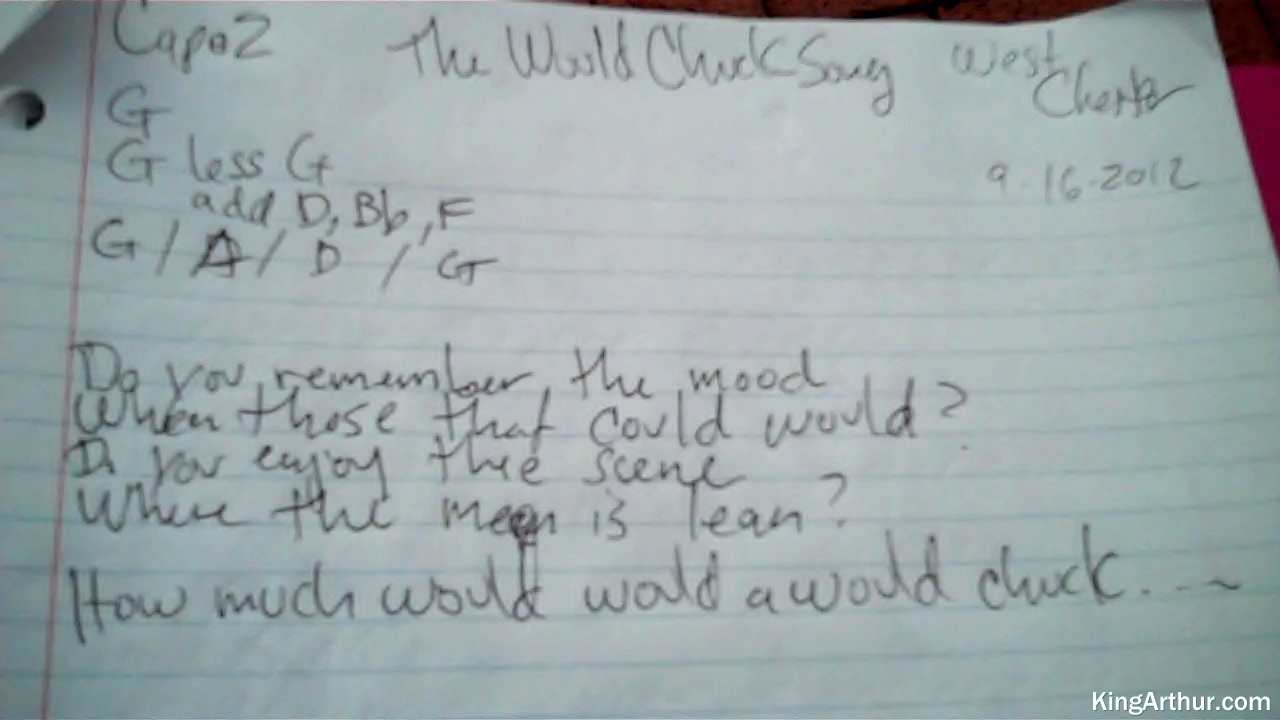 Capo2 The Would Chuck Song West
Chester
G
G less G
9.16.2012
add D, Bb, F
G / A / D / G
Do you remember the mood
When those that could would?
Do you enjoy the scene
Where the mean is lean?
How much would would a would chuck...~
KingArthur.com